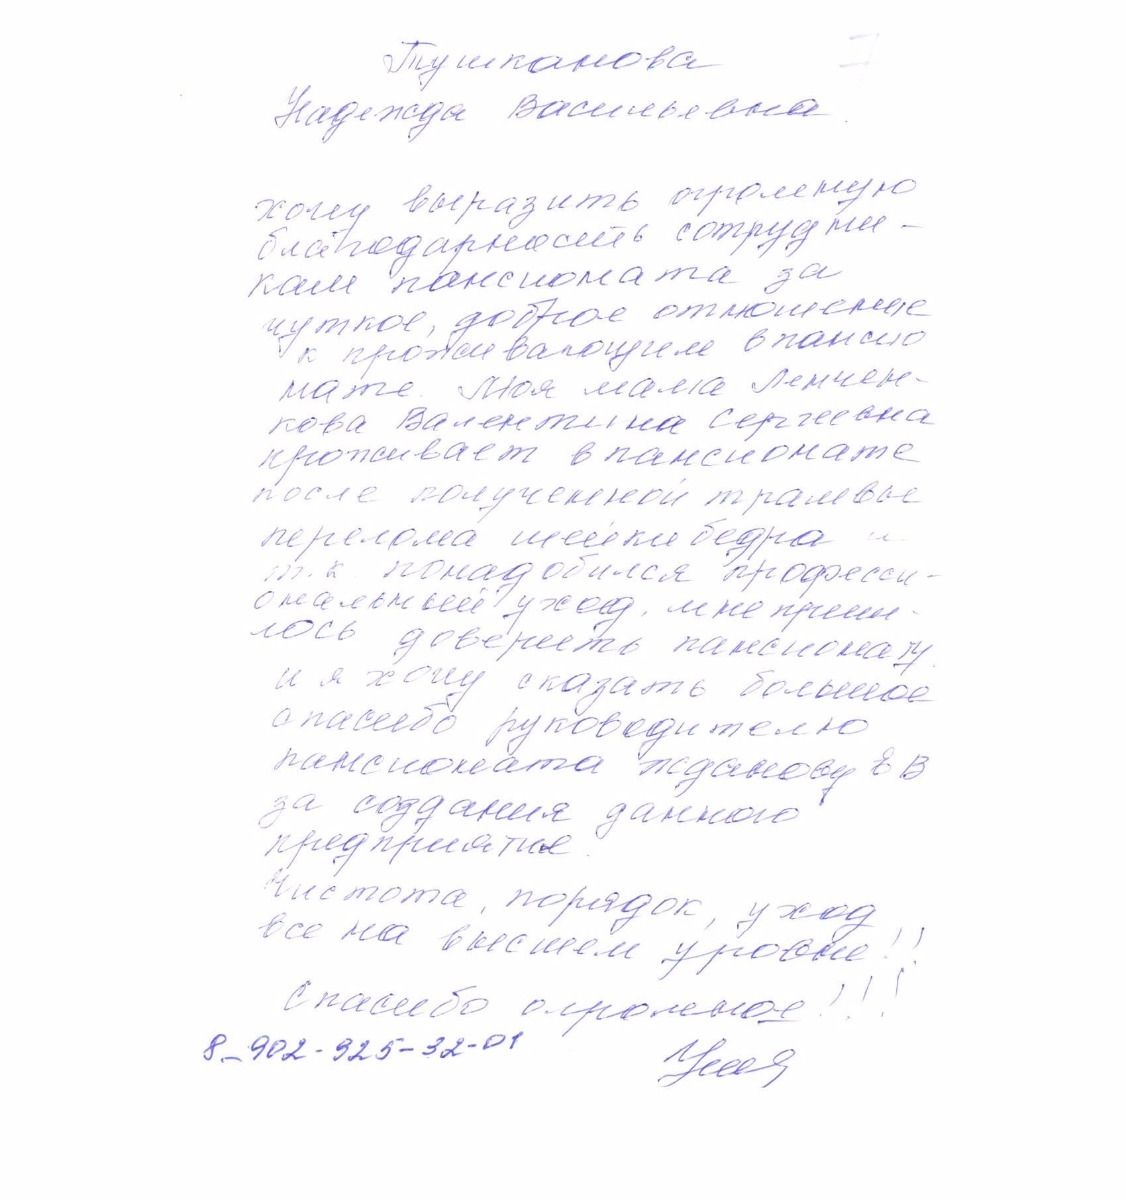 Тушканова
Надежда Васильевна.
хочу выразить огромную
благодарность сотрудни-
кам пансионата за
чуткое, доброе отношение
к проживающим в пансио
нате. Моя мама Ленчен-
кова Валентина Сергеевна
проживает в пансионате
после полученной травмы
перелома шейки бедра и
т.к. понадобился професси-
ональный уход, мне приш-
лось доверить пансионату.
и я хочу сказать большое
спасибо руководителю
пансионата Жданову Е В
за создания данного
предприятие.
Чистота, порядок, уход
все на высшем уровне!!
Спасибо огромное!!!
8-902-925-32-01